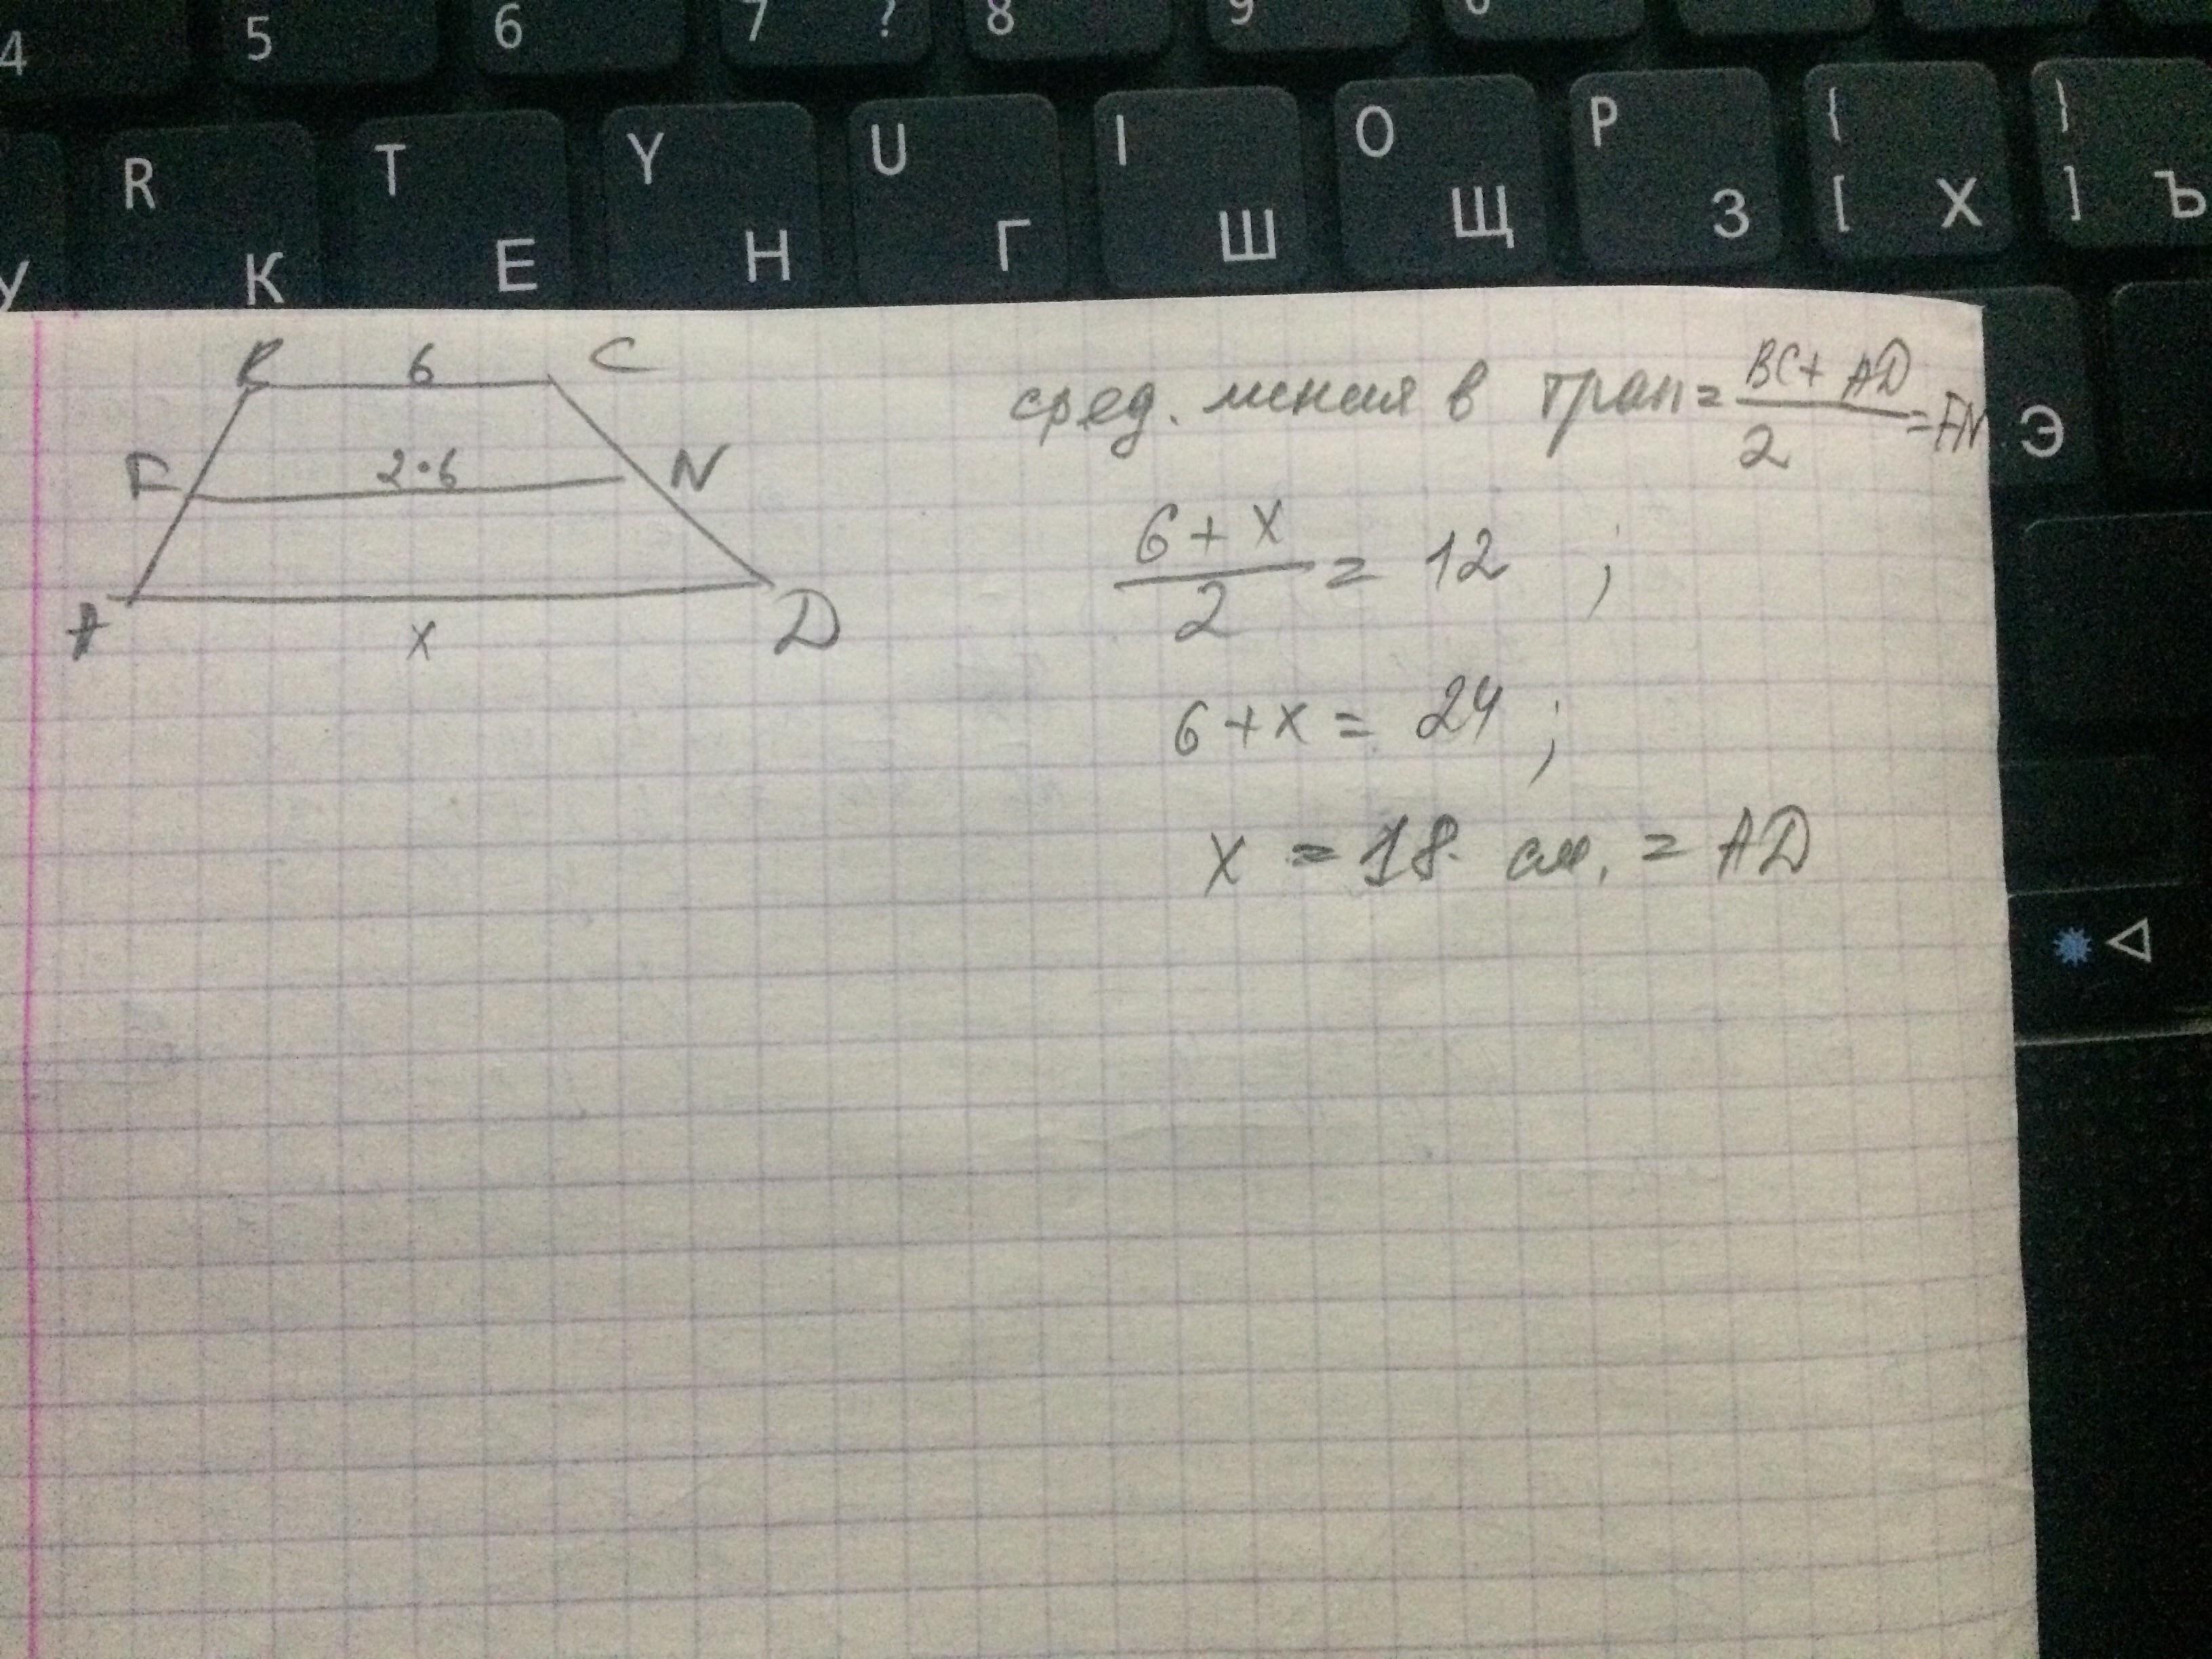 4 5 6 7 ? 8 9
R T Y U I O P { }
У К Е Н Г Ш Щ З [ Х ] Ъ
Э
B 6 C
F 2·6 N
A x D
сред. линия в трап = BC + AD / 2 = FN
6 + x / 2 = 12 ;
6 + x = 24 ;
x = 18 см. = AD